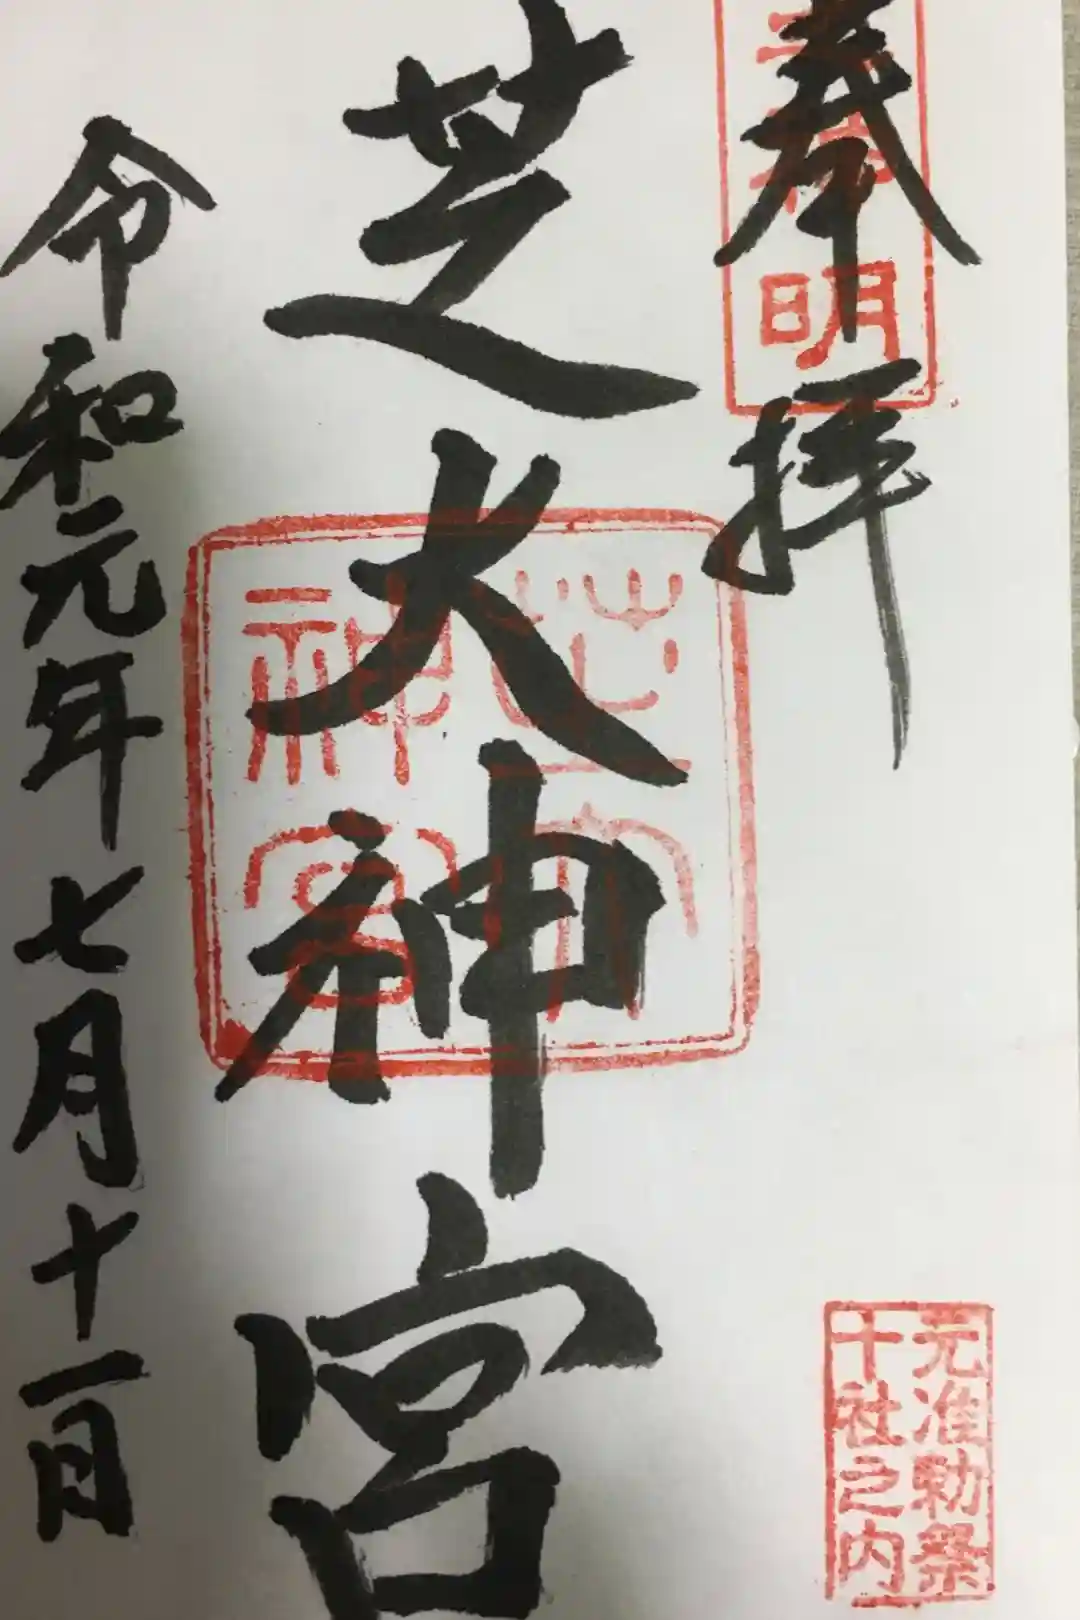 奉拝
明
芝大神宮
芝大神宮
令和元年七月十一日
元准勅祭
十社之内